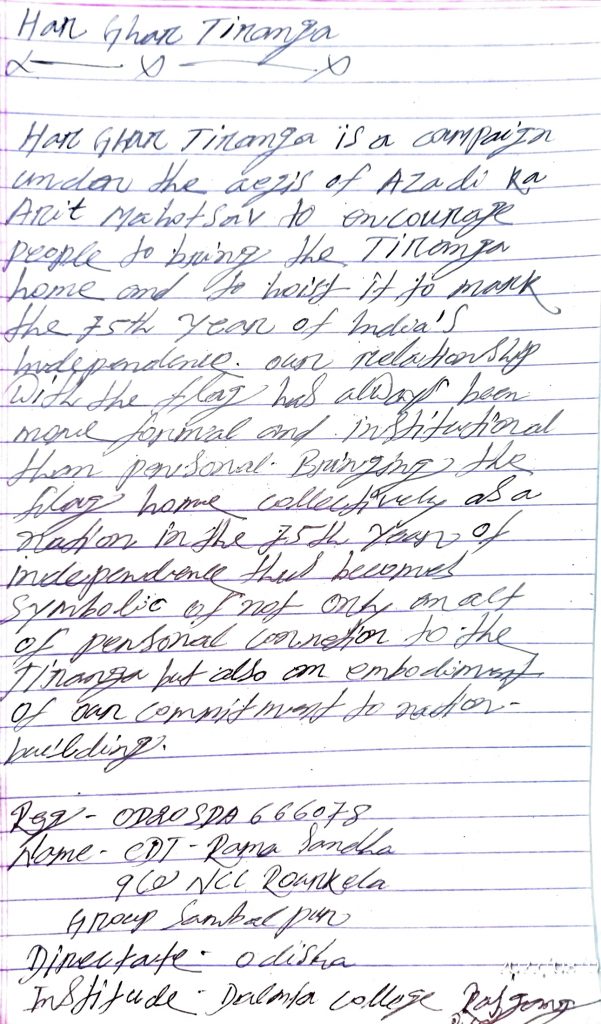 Har Ghar Tiranga
Har Ghar Tiranga is a campaign
under the aegis of Azadi Ka
Amrit Mahotsav to encourage
people to bring the Tiranga
home and to hoist it to mark
the 75th Year of India's
independence. our relationship
with the flag has always been
more formal and institutional
than personal. Bringing the
flag home collectively as a
nation in the 75th Year of
independence thus becomes
symbolic of not only an act
of personal connection to the
Tiranga but also an embodiment
of our commitment to nation-
building.
Reg - OD20SDA 666078
Name - CDT - Rama Sandha
NCC Rourkela
Group Sambalpur
Directate - odisha
Institude - Dalmia college